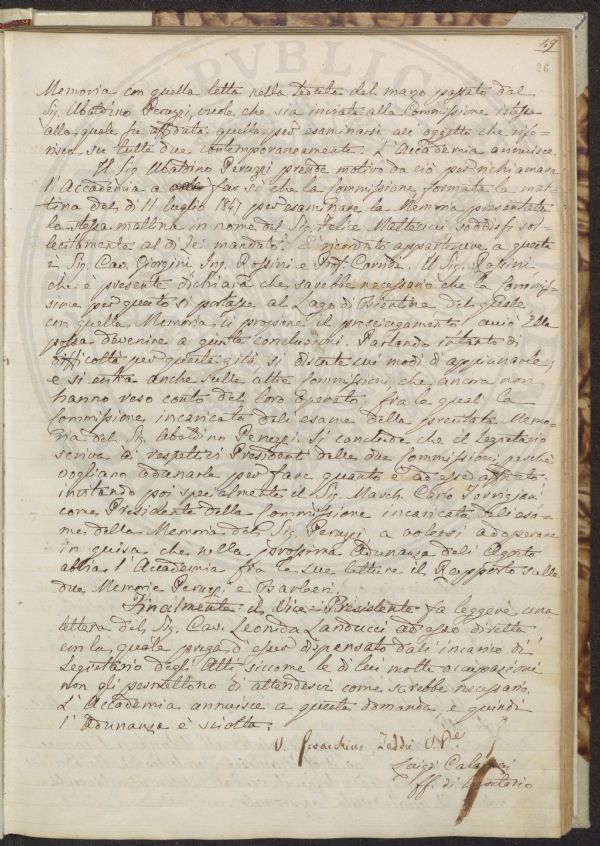 49
26
Memoria con quella letta nella tenuta del marzo passato dal
Sig. Ubaldino Peruzzi, vuole che sia inviata alla Commissione istessa
alla quale fu affidata quella per esaminarsi ad oggetto che rife-
risca su tutte due contemporaneamente. L'Accademia annuisce.
Il Sig. Ubaldino Peruzzi prende motivo da ciò per richiamare
l'Accademia a far sì che la Commissione formata la mat-
tina del dì 11 luglio 1847 per esaminare la Memoria presentata
la stessa mattina in nome del Sig. Felice Matteucci soddisfi sol-
lecitamente al di lei mandato. È ricordato appartenere a questa
i Sig. Cav. Giorgini Ing. Rossini e Prof. Corridi. Il Sig. Rossini,
che è presente dichiara che sarebbe necessario che la Commis-
sione per questo si portasse al Lago di Bientina del quale
con quella Memoria si propone il prosciugamento onde Ella
possa devenire a giuste conclusioni. Parlando intanto di
difficoltà per questa gita, si discute sui modi di appianarle,
e si entra anche sulle altre Commissioni che ancora non
hanno reso conto del loro operato: fra le quali la
Commissione incaricata dell'esame della precitata Memo-
ria del Sig. Ubaldino Peruzzi. Si conclude che il Segretario
scriva ai respettivi Presidenti delle due Commissioni perchè
vogliano adunarle per fare quanto è ad esse affidato:
invitando poi specialmente il Sig. March. Carlo Torrigiani
come Presidente della Commissione incaricata dell'esa-
me della Memoria del Sig. Peruzzi a volersi adoperare
in guisa che nella prossima Adunanza dell'Agosto
abbia l'Accademia fra le sue letture il Rapporto sulle
due Memorie Peruzzi e Barbieri.
Finalmente il Vice-Presidente fa leggere una
lettera del Sig. Cav. Leonida Landucci ad esso diretta
con la quale prega d'esser dispensato dall'incarico di
Segretario degli Atti siccome le di lui molte occupazioni
non gli permettono di attendervi come sarebbe necessario.
L'Accademia annuisce a questa domanda e quindi
l'Adunanza è sciolta.
V. Gioacchino Taddei V. Pe.
Luigi Calamai
ff. di Segretario